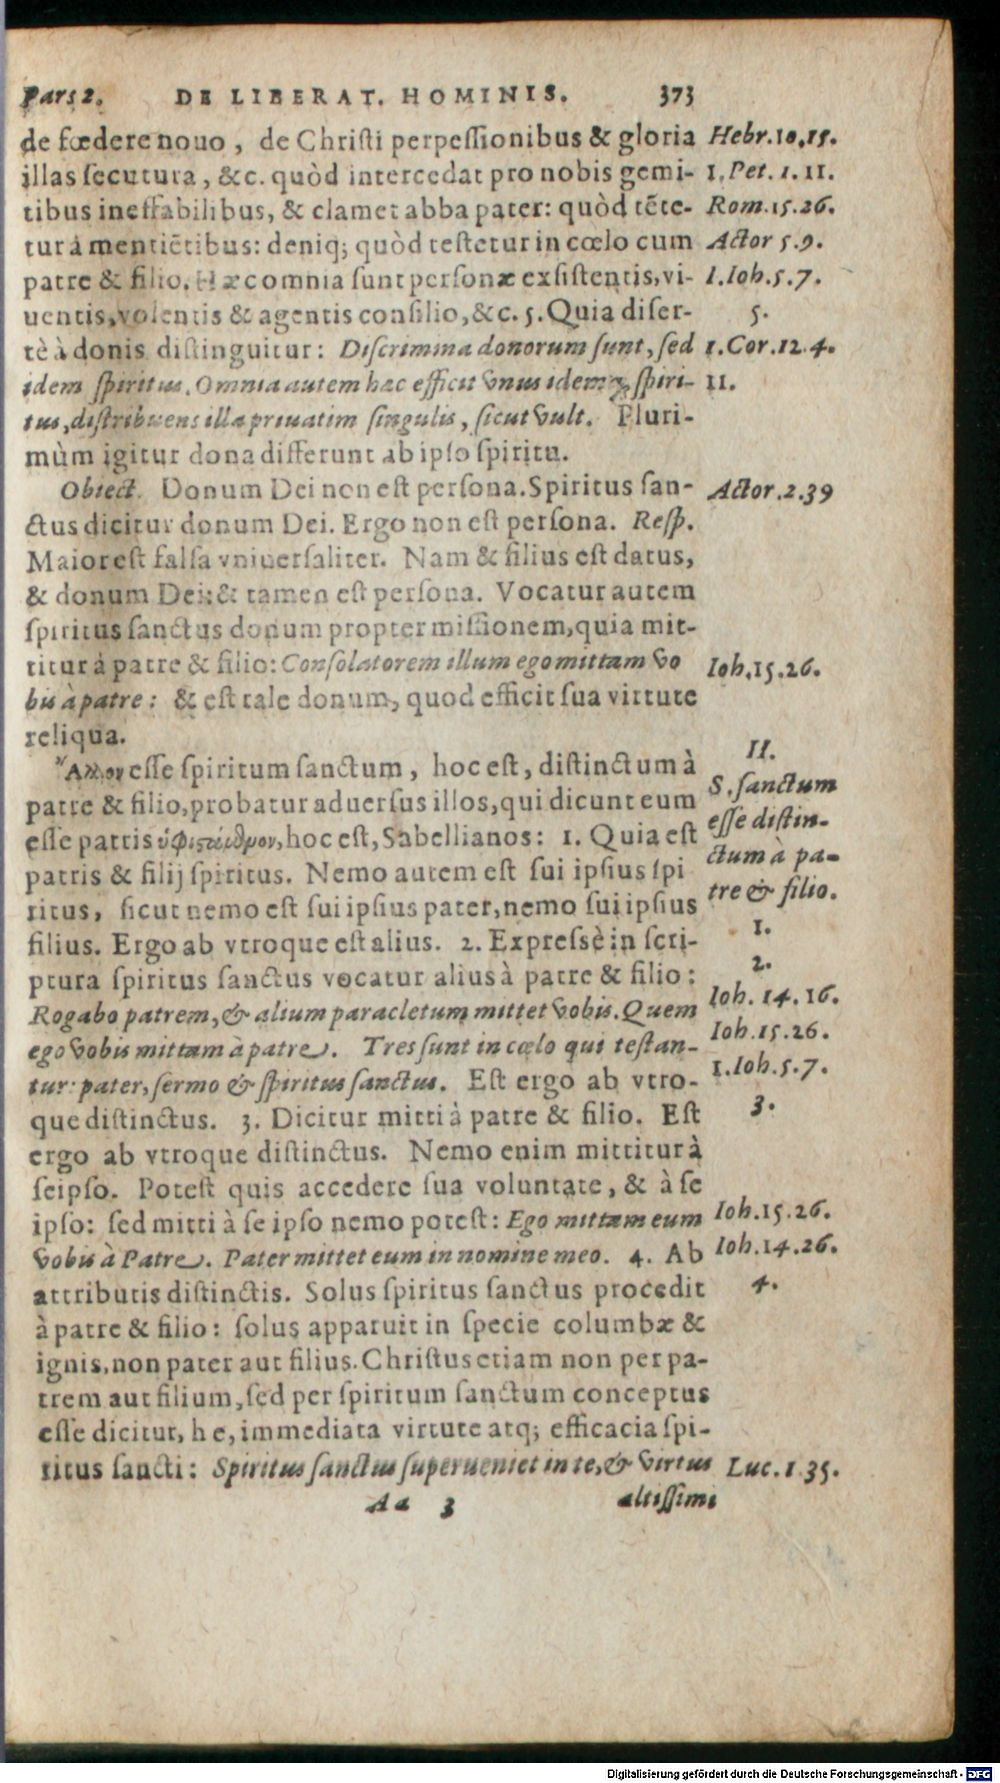 Pars 2. DE LIBERAT. HOMINIS. 373
de fœdere nouo, de Christi perpeſſionibus & gloria Hebr.10.15.
illas ſecutura, &c. quòd intercedat pro nobis gemi- 1.Pet.1.11.
tibus ineffabilibus, & clamet abba pater: quòd tẽte- Rom.15.26.
tur à mentiẽtibus: deniq; quòd teſtetur in cœlo cum Actor 5.9.
patre & filio. Hæc omnia ſunt perſonæ exſiſtentis, vi- 1.Ioh.5.7.
uentis, volentis & agentis conſilio, &c. 5. Quia diſer- 5.
tè à donis diſtinguitur: Diſcrimina donorum ſunt, ſed 1.Cor.12.4.
idem ſpiritus. Omnia autem hæc efficit vnus idemq; ſpiri- 11.
tus, diſtribuens illa priuatim ſingulis, ſicut vult. Pluri-
mùm igitur dona differunt ab ipſo ſpiritu.
Obiect. Donum Dei non eſt perſona. Spiritus ſan- Actor.2.39
ctus dicitur donum Dei. Ergo non eſt perſona. Reſp.
Maior eſt falſa vniuerſaliter. Nam & filius eſt datus,
& donum Dei: & tamen eſt perſona. Vocatur autem
ſpiritus ſanctus donum propter miſſionem, quia mit-
titur à patre & filio: Conſolatorem illum ego mittam vo Ioh.15.26.
bis à patre: & eſt tale donum, quod efficit ſua virtute
reliqua.
Ἄλλον eſſe ſpiritum ſanctum, hoc eſt, diſtinctum à II.
patre & filio, probatur aduerſus illos, qui dicunt eum S. ſanctum
eſſe patris ὑφιστάμενον, hoc eſt, Sabellianos: 1. Quia eſt eſſe diſtin-
patris & filij ſpiritus. Nemo autem eſt ſui ipſius ſpi ctum à pa-
ritus, ſicut nemo eſt ſui ipſius pater, nemo ſui ipſius tre & filio.
filius. Ergo ab vtroque eſt alius. 2. Expreſsè in ſcri- 1.
ptura ſpiritus ſanctus vocatur alius à patre & filio: 2.
Rogabo patrem, & alium paracletum mittet vobis. Quem Ioh. 14.16.
ego vobis mittam à patre. Tres ſunt in cœlo qui teſtan- Ioh.15.26.
tur: pater, ſermo & ſpiritus ſanctus. Eſt ergo ab vtro- 1.Ioh.5.7.
que diſtinctus. 3. Dicitur mitti à patre & filio. Eſt 3.
ergo ab vtroque diſtinctus. Nemo enim mittitur à
ſeipſo. Poteſt quis accedere ſua voluntate, & à ſe
ipſo: ſed mitti à ſe ipſo nemo poteſt: Ego mittam eum Ioh.15.26.
vobis à Patre. Pater mittet eum in nomine meo. 4. Ab Ioh.14.26.
attributis diſtinctis. Solus ſpiritus ſanctus procedit 4.
à patre & filio: ſolus apparuit in ſpecie columbæ &
ignis, non pater aut filius. Chriſtus etiam non per pa-
trem aut filium, ſed per ſpiritum ſanctum conceptus
eſſe dicitur, h e, immediata virtute atq; efficacia ſpi-
ritus ſancti: Spiritus ſanctus ſuperueniet in te, & virtus Luc.1.35.
Aa 3 altiſſimi
Digitalisierung gefördert durch die Deutsche Forschungsgemeinschaft - DFG